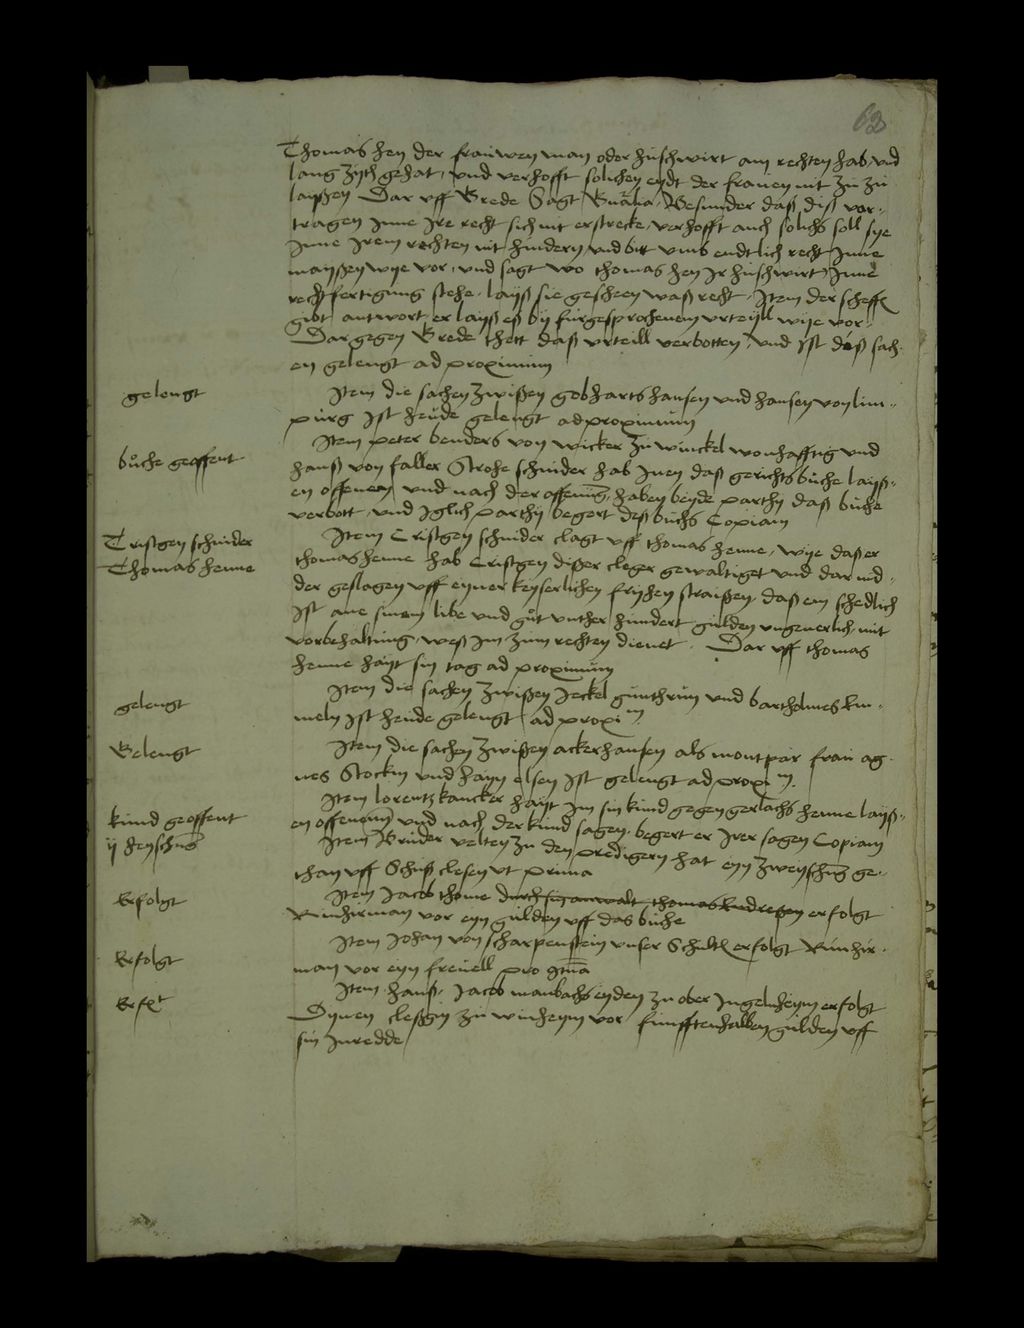 62
Thomas hen der frauwen man oder huschwirt am rechten hab, und
lang zijth gehat, und verhofft solichen eydt der frauen nit zu zu
laissen Dar uff Brede Sagt Besunder daß diß vor-
tragen Inne Ire recht sich nit erstrecke, verhofft auch solichs soll sye
Inne Irem rechten nit hindern und bitt umb endtlich recht Inne
maissen wye vor, und sagt wo thomas hen Ir huschwirt Inne
rechtfertigung stehe, laijß sie gescheen waß recht, Item der scheff
gibt antwort er laijß eß bij fur gesprochenem urteijll wije vor
Dar gegen Brede thett daß urteill verbotten, und Ist diß sach
en gelengt ad proximum
gelengt
Item die sachen zwißen gobharts hansen und hansen von lim-
purg Ist heude gelengt ad proximum
buche geoffent
Item peter benders von wicker zu winckel wonhafftig und
hanß von faller Strohe schnider hab Inen daß gerichts buche laijß-
en offenen und nach der offenung, haben beyde parthij daß buche
verbott, und Iglich parthij begert deß buchs Copiam
Cristgen schnider
Thomas henne
Item Cristgen schnider clagt uff thomas henne, wije daß er
thomas henne hab Cristgen dißer cleger gewaltiget und dar nid-
der geslagen uff eyner keyserlichen frijhen straißen, daß em schedlich
Ist ane sinem libe und gut unther hundert gulden ungeuerlich, mit
vorbehaltung, weß Im zum rechten dienet. Dar uff thomas
henne hayt sin tag ad proximum
gelengt
Item die sachen zwißen Jeckel gunthrum und bartholmes km-
meln Ist heude gelengt ad proxim
Gelengt
Item die sachen zwißen ackerhansen als montpar frau ag-
nes Stockin und hayn elsen Ist gelengt ad proxim.
kund geoffent
Item lorentz kancker hayt Im sin kund gegen gerlachs henne laijß-
en offenenn und nach der kund sagen, begert er Irer sagen Copiam
ij heyschung
Item Bruder velten zu den predigern hat eyn zweyschung ge-
than uff Schuß clesen ut prima
Erfolgt
Item Jacob thome durch sin anwalt thomas erfolgt
Rinhirman vor eyn gulden uff das buche
Erfolgt
Item Johan von scharpenstein unser Schulth erfolgt Rinhir-
man vor eyn freuell pro gma
Erfolt
Item hanß Jacob manbachs eyden zu ober Ingelnheym erfolgt
Dynen cleßgin zu winheym vor funfftenhalben gulden uff
sin Inredde